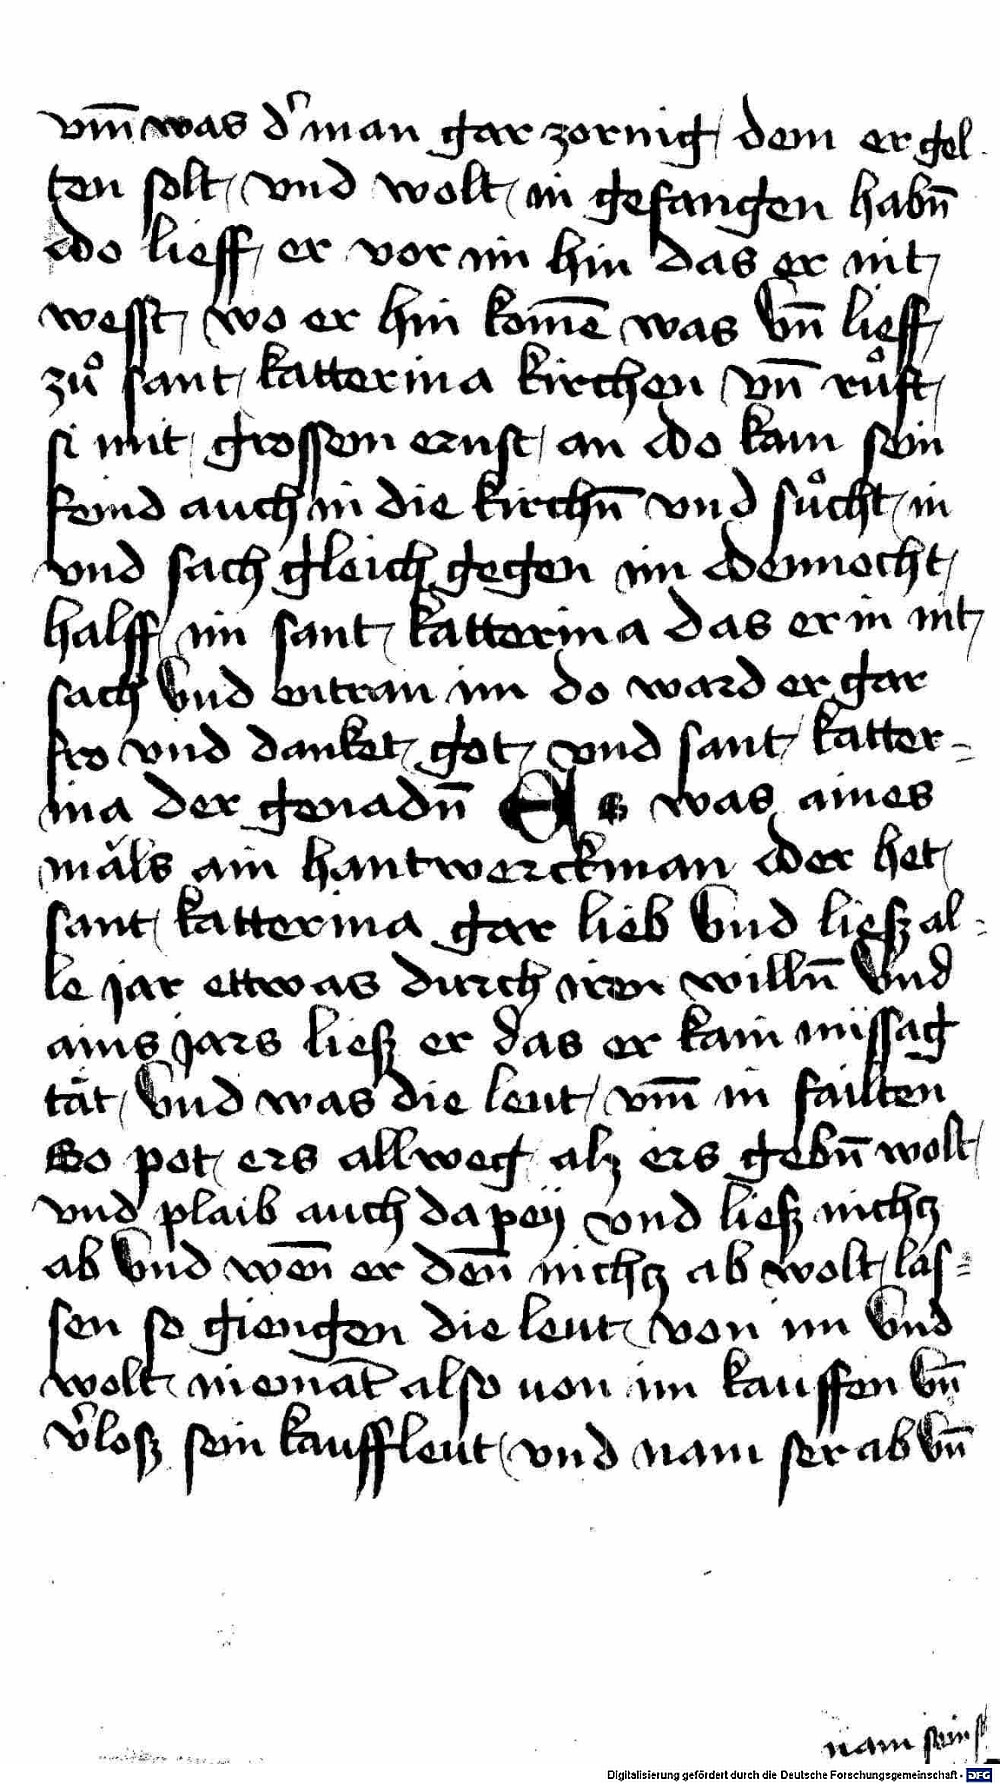 vm̄ was d' man gar zornig dem er gel-
ten solt vnd wolt in gefangen habn̄
Do lieff er vor im hin das er nit
wesst wo er hin kom̄e was vn̄ lieff
zů sant katterina kirchen vn̄ růft
si mit grossem ernst an Do kam sein
feind auch in die kirchn̄ vnd sůcht in
vnd sach gleich gegen im Dennocht
halff im sant katterina das er in nit
sach vnd entran im do ward er gar
fro vnd danket got vnd sant katter=
ina der genadn̄ Es was aines
mäls ain hantwerckman Der het
sant katterina gar lieb vnd liesz al-
le jar ettwas durch iren willn̄ vnd
ains jars liesz er das er kain missag
tät vnd was die leut vm̄ in failten
So pot ers allweg alz ers gebn̄ wolt
vnd plaib auch da peÿ vnd liesz nichtz
ab vnd wen̄ er den̄ nichtz ab wolt las=
sen so giengen die leut von im vnd
wolt niemāt also von im kauffen vn̄
v'losz sein kauffleut vnd nam ser ab vn̄
nam sein
Digitalisierung gefördert durch die Deutsche Forschungsgemeinschaft - DFG